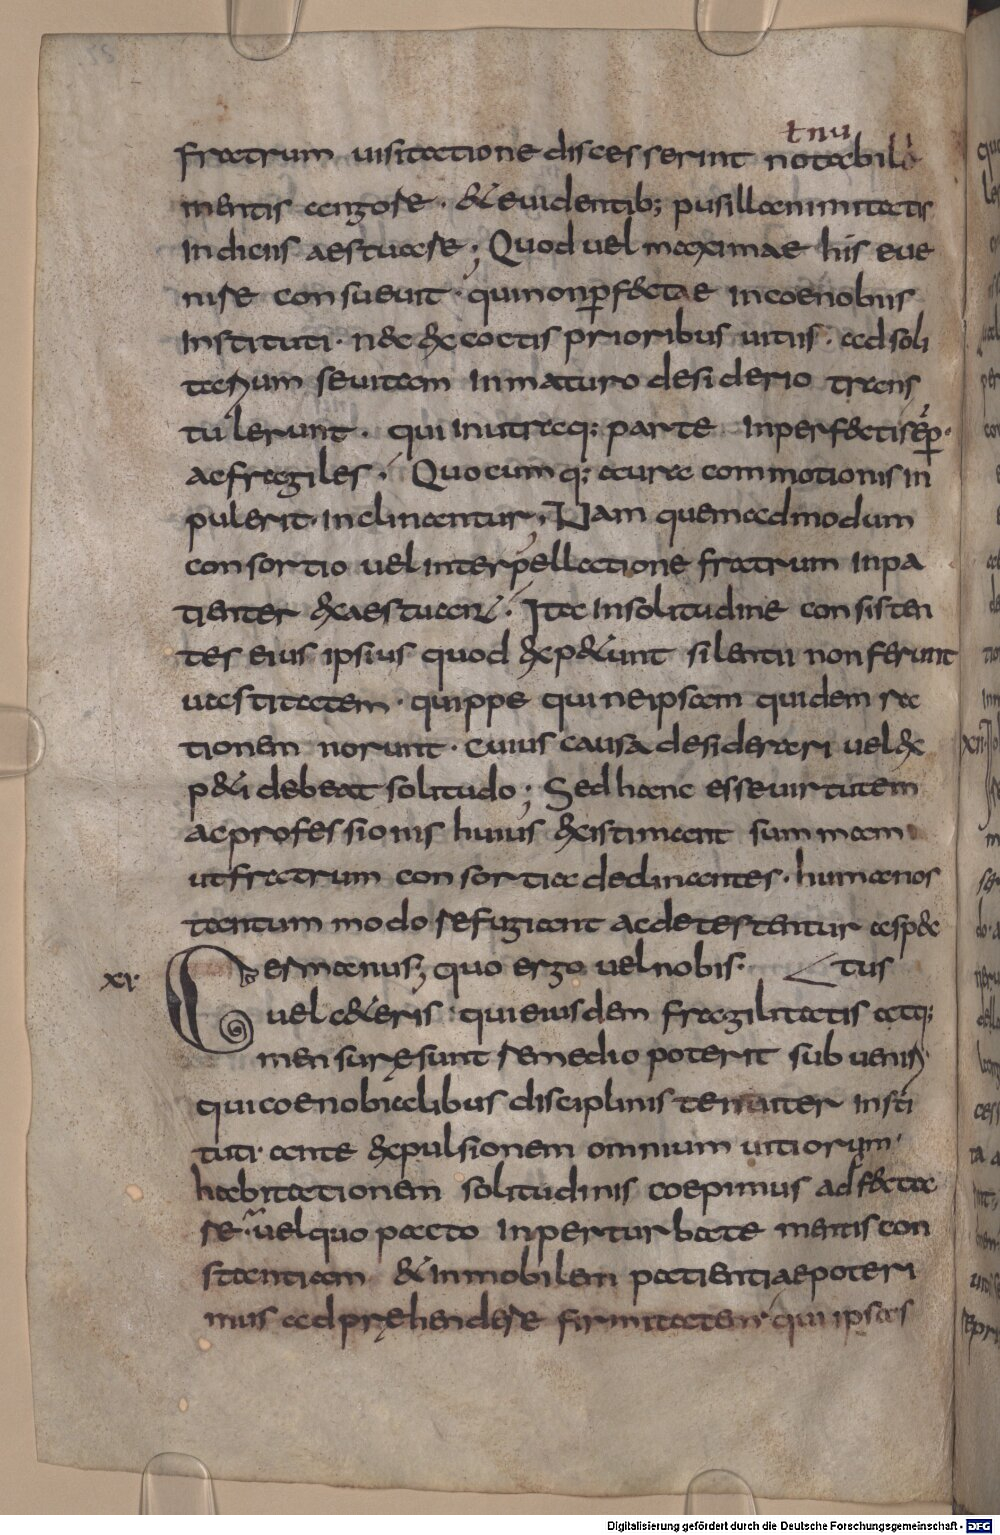 tnu
fratrum uisitatione discesserint notabili
mentis angore · &euidentib; pusillanimitatis
indiciis aestuare ; Quod uel maximae his eue
nire consueuit · qui non p̱fectae in coenobiis
instituti · nec excoctis prioribus uitiis · ad soli
tariam se uitam inmaturo desiderio trans
tulerunt · qui in utraq; parte inperfecti sēp ·
ac fragiles · Quocumq; aura commotionis in
pulerit · inclinantur , Nam quemadmodum
consortio uel interpellatione fratrum inpa
tienter exaestuant · Ita in solitudine consisten
tes eius ipsius quod exp&unt silentii non ferunt
uastitatem · quippe qui ne ipsam quidem ra
tionem norunt · cuius causa desiderari uel ex
p&i debeat solitudo ; Sed hanc esse uirtutem
ac professionis huius existimant summam
ut fratrum consortia declinantes · humanos
tantum modo refugiant ac detestentur aspec
xi· Germanus; quo ergo uel nobis · tus
uel c&eris · qui eiusdem fragilitatis atq;
mensurę sunt remedio poterit subueniri
qui coenobialibus disciplinis tenuiter insti
tuti · ante expulsionem omnium uitiorum ·
habitationem solitudinis coepimus adfecta
re · uel quo pacto inperturbate mentis con
stantiam &inmobilem patientiae poteri
mus adpręhendere firmitatem qui ipsas
Digitalisierung gefördert durch die Deutsche Forschungsgemeinschaft - DFG